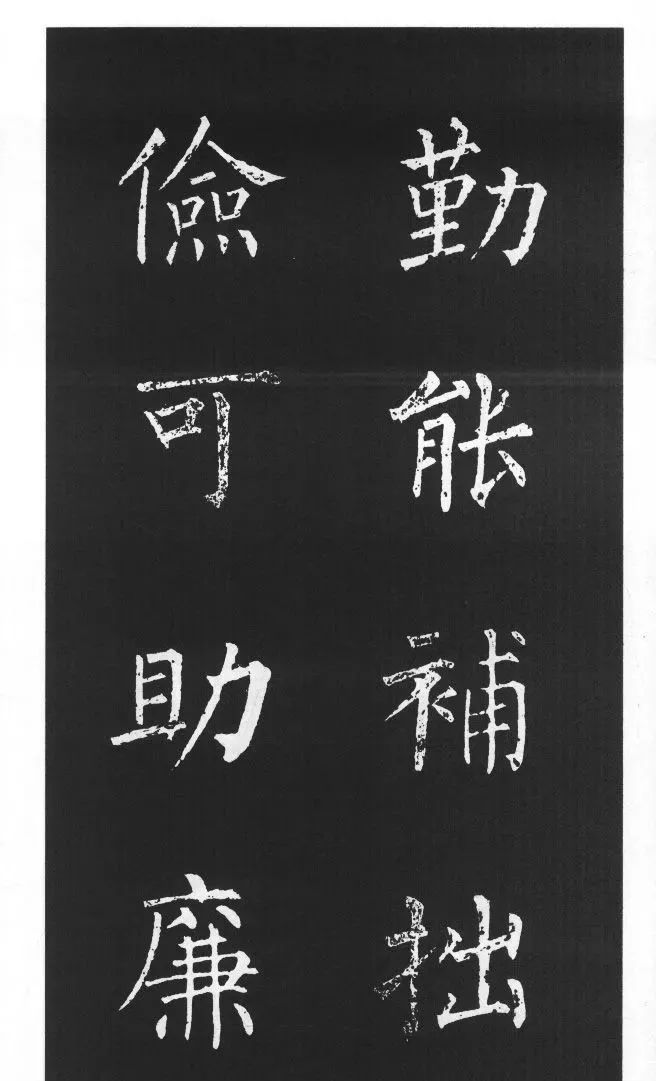 勤能補拙
儉可助廉